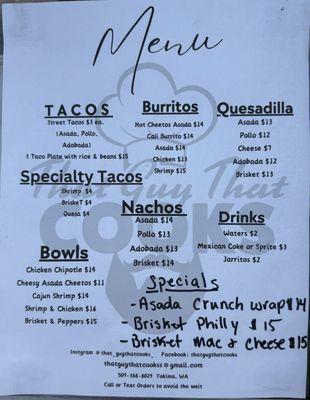 Menu
TACOS
Street Tacos $3 ea.
(Asada, Pollo,
Adobada)
3 Taco Plate with rice & beans $15
Specialty Tacos
Shrimp $4
BriskeT $4
Quesa $4
Bowls
Chicken Chipotle $14
Cheesy Asada Cheetos $11
Cajun Shrimp $14
Shrimp & Chicken $16
Brisket & Peppers $15
Burritos
Hot Cheetos Asada $14
Cali Burrito $14
Asada $14
Chicken $13
Shrimp $15
Nachos
Asada $14
Pollo $13
Adobada $13
Brisket $14
Quesadilla
Asada $13
Pollo $12
Cheese $7
Adobada $12
Brisket $13
Drinks
Waters $2
Mexican Coke or Sprite $3
Jarritos $2
Specials
- Asada Crunch wrap $14
- Brisket Philly $15
- Brisket Mac & cheese $15
That Guy That
COOKS
Instgram @that_guythatcooks_ Facebook: thatguythatcooks
thatguythatcookss@gmail.com
509-188-8029 Yakima, WA
Call or Text Orders to avoid the wait